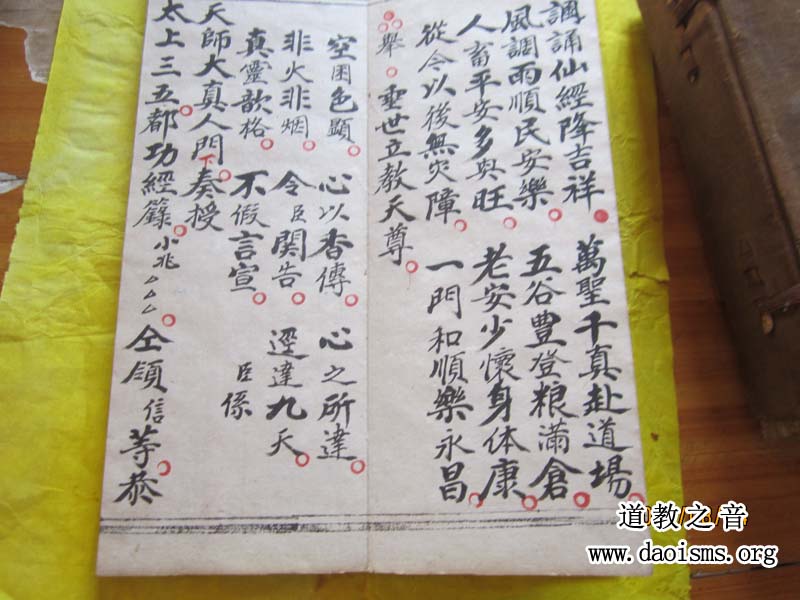 諷誦仙經降吉祥 萬聖千真赴道場
風調雨順民安樂 五谷豊登粮滿倉
人畜平安多興旺 老安少懷身体康
從今以後無灾障 一門和順樂永昌
舉 垂世立教天尊
空因色顯 心以香傳 心之所達
非火非烟 令臣関告 逕達九天
真靈歆格 不假言宣 臣係
天師大真人門下奏授
太上三五都功經籙 小兆厶厶厶 仝領信等恭
道教之音
www.daoisms.org